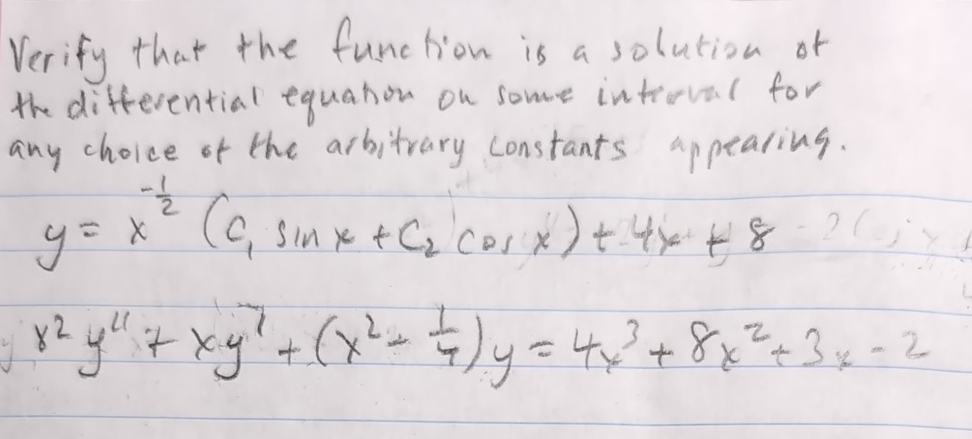 Verify that the function is a solution of
the differential equation on some interval for
any choice of the arbitrary constants appearing.
y = x^{-1/2} (C₁ sin x + C₂ cos x) + 4x + 8
x² y'' + xy' + (x² - 1/4) y = 4x³ + 8x² + 3x - 2